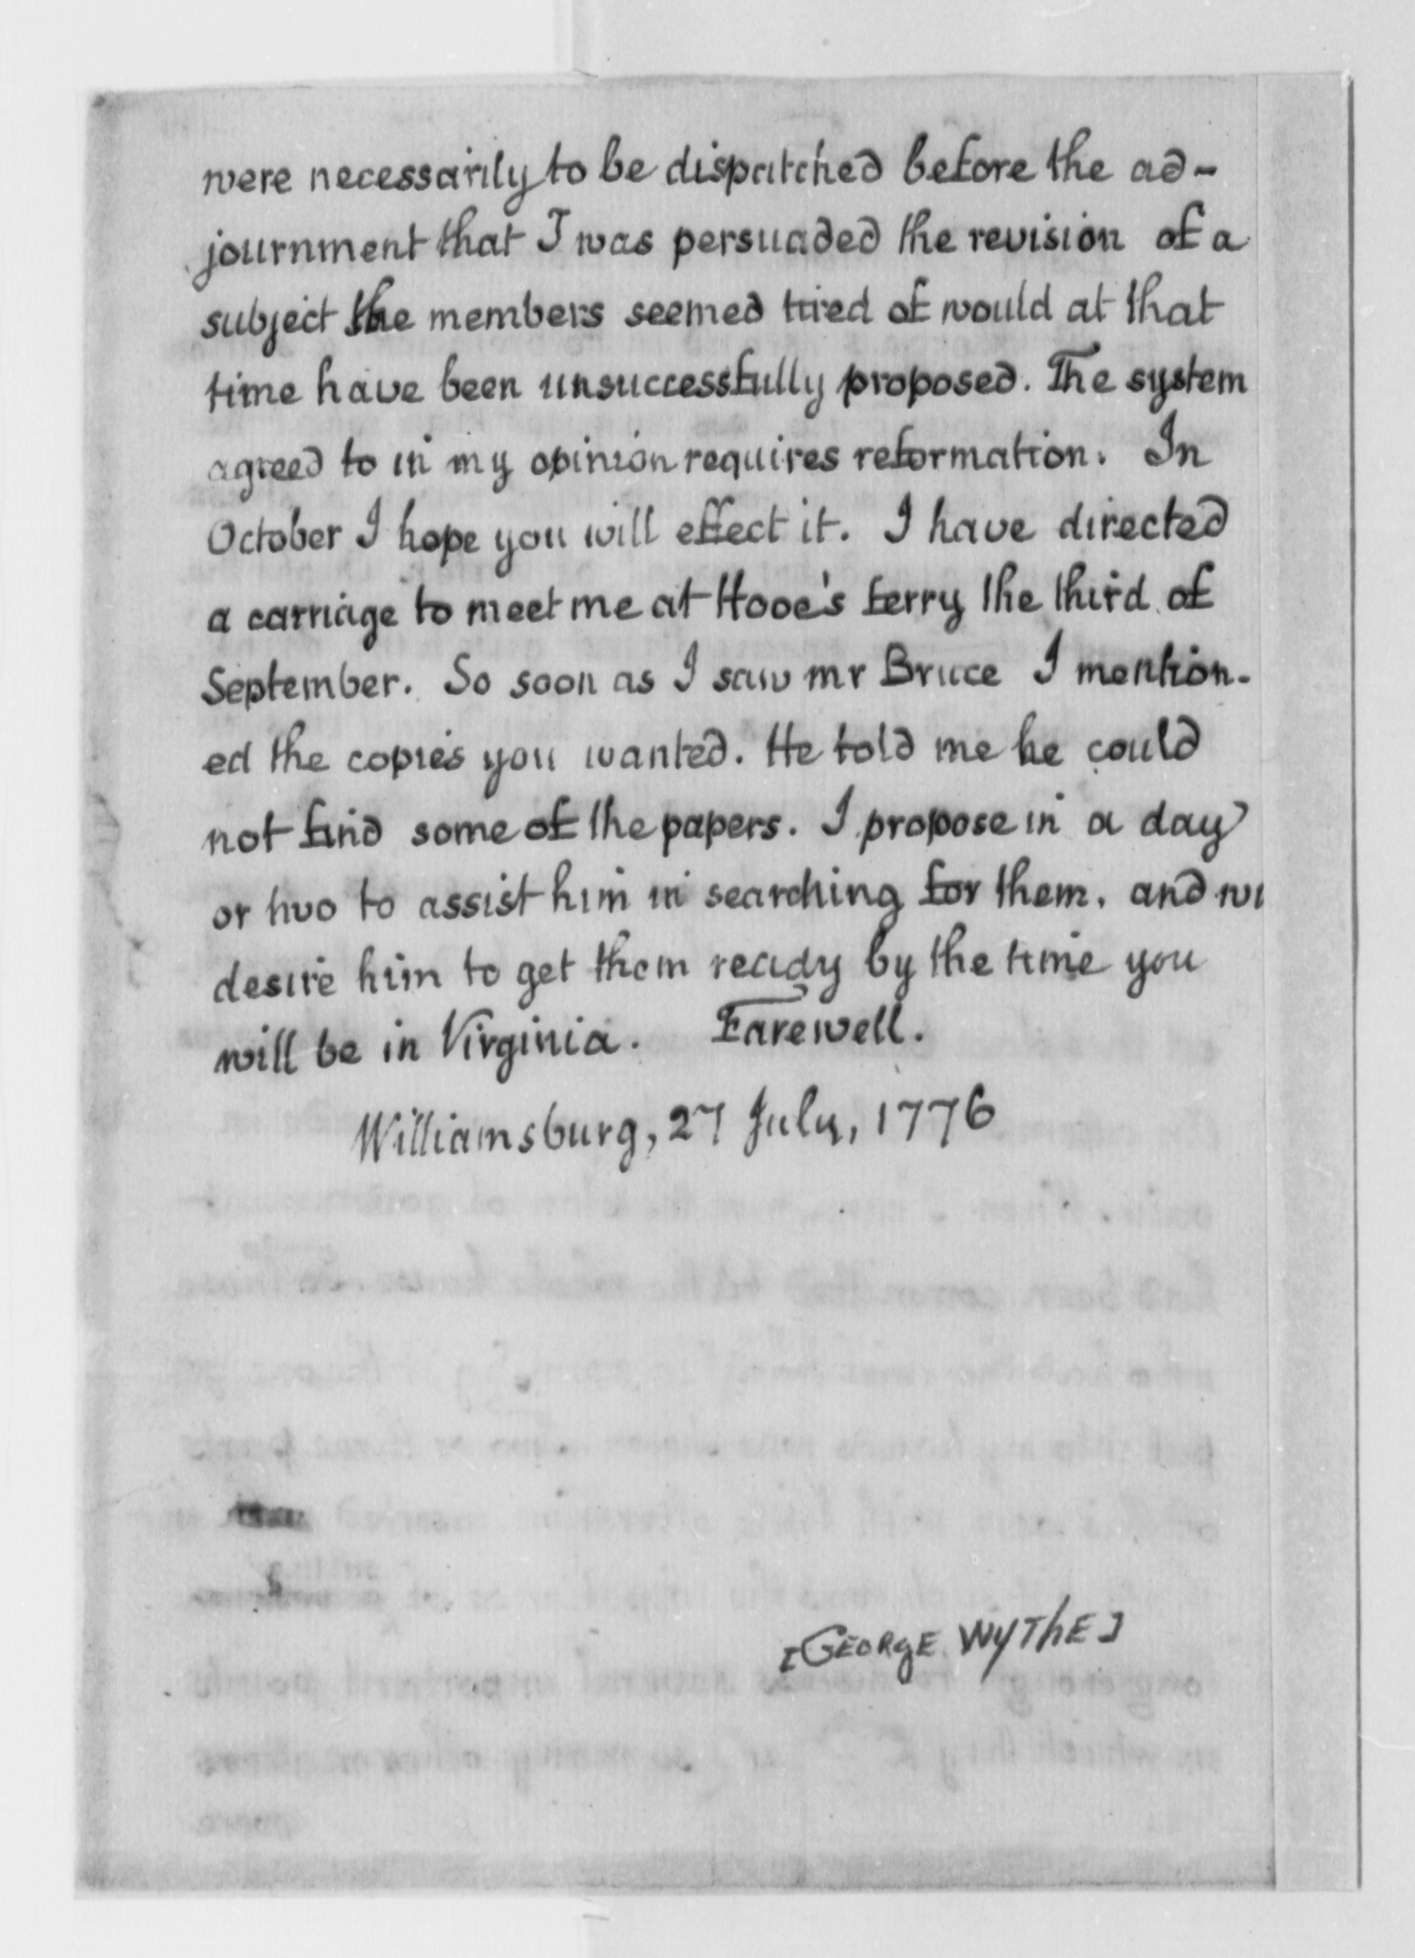 were necessarily to be dispatched before the ad-
journment that I was persuaded the revision of a
subject the members seemed tired of would at that
time have been unsuccessfully proposed. The system
agreed to in my opinion requires reformation. In
October I hope you will effect it. I have directed
a carriage to meet me at Hooe's ferry the third of
September. So soon as I saw mr Bruce I mention-
ed the copies you wanted. He told me he could
not find some of the papers. I propose in a day
or two to assist him in searching for them, and
desire him to get them ready by the time you
will be in Virginia. Farewell.
Williamsburg, 27 July, 1776
[George Wythe]